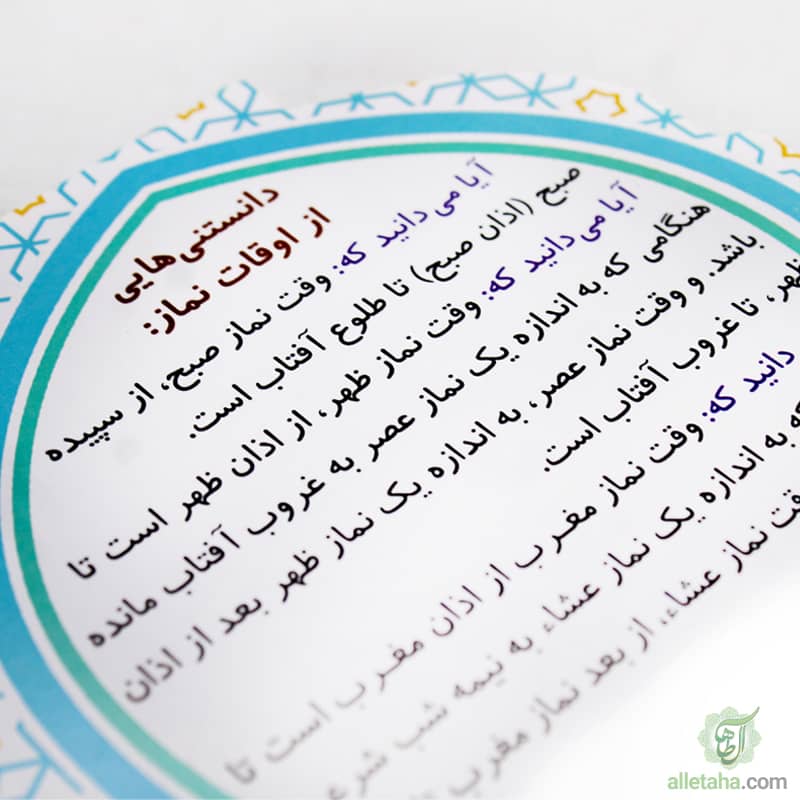 دانستنی‌هایی
از اوقات نماز:
آیا می دانید که: وقت نماز صبح، از سپیده
صبح (اذان صبح) تا طلوع آفتاب است.
آیا می دانید که: وقت نماز ظهر، از اذان ظهر است تا
هنگامی که به اندازه یک نماز عصر به غروب آفتاب مانده
باشد. و وقت نماز عصر، به اندازه یک نماز ظهر بعد از اذان
ظهر، تا غروب آفتاب است.
دانید که: وقت نماز مغرب از اذان مغرب است تا
که به اندازه یک نماز عشاء به نیمه شب شرعی
وقت نماز عشاء، از بعد نماز مغرب
alletaha.com